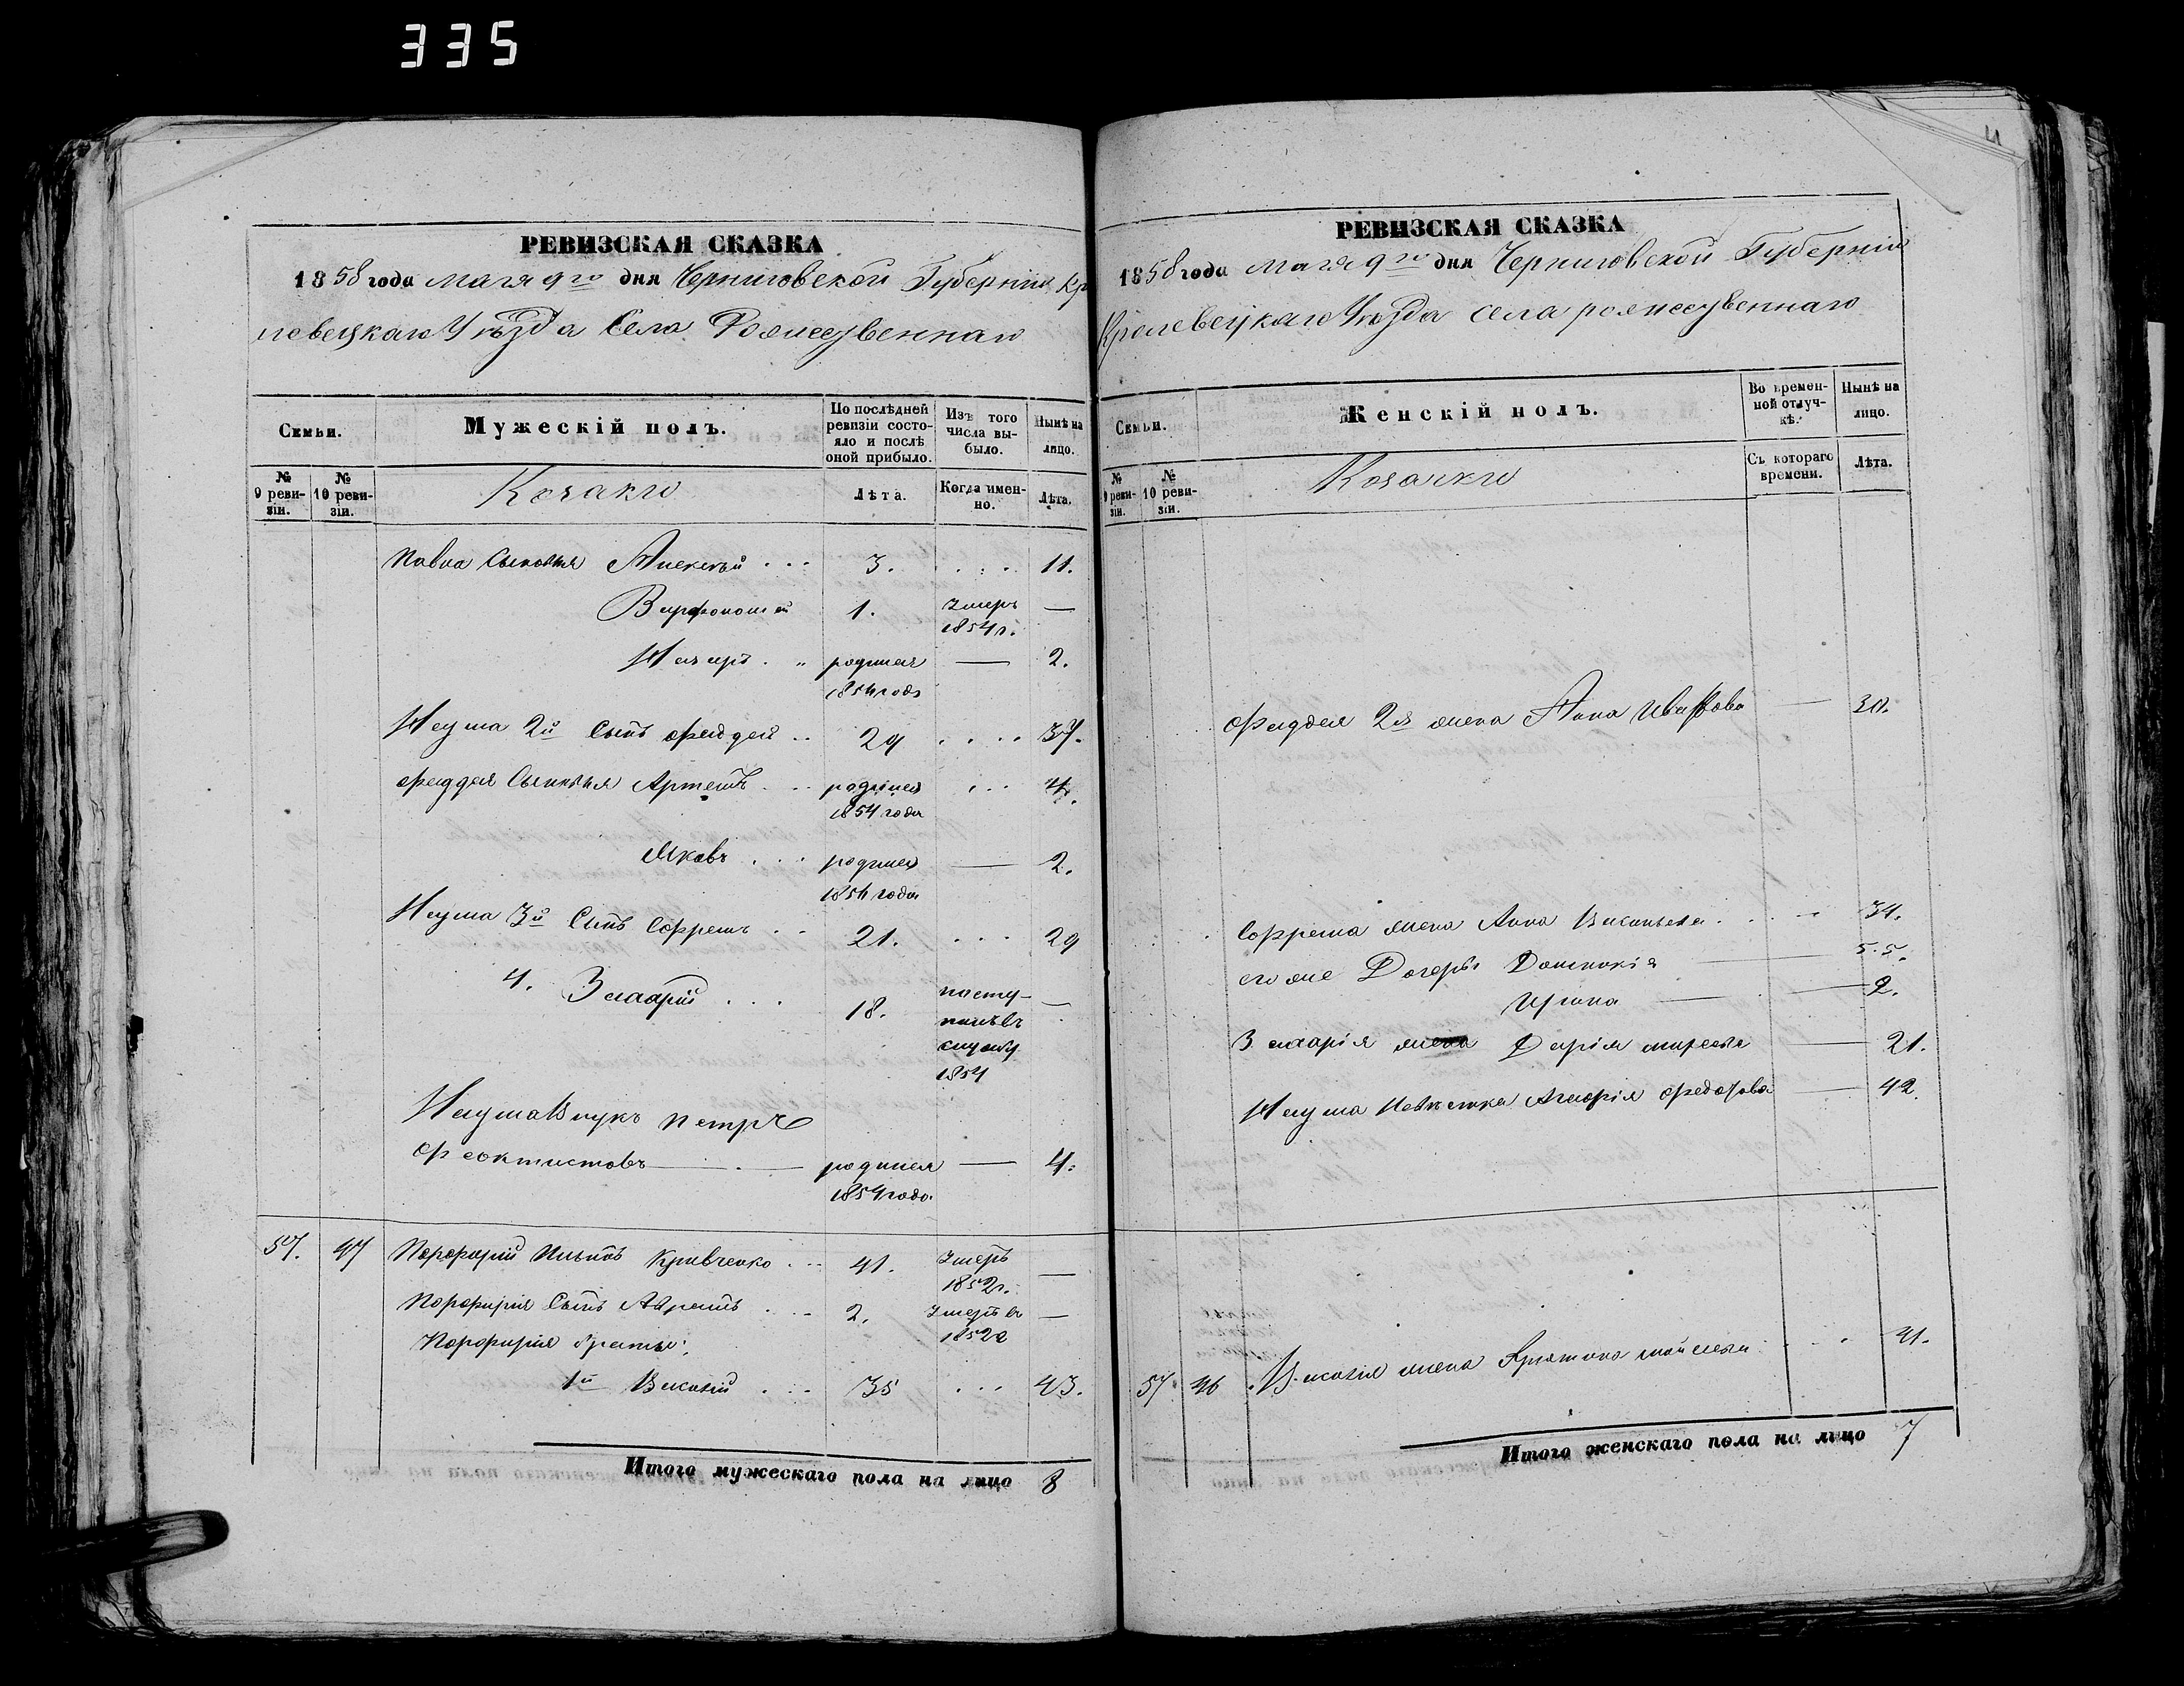 335
РЕВИЗСКАЯ СКАЗКА
1858 года мая 9го дня Черниговской Губерніи Кро
левецкаго Уѣзда Села Рождественнаго
Семьи.
Мужескій полъ.
По послѣдней ревизіи состояло и послѣ оной прибыло.
Изъ того числа выбыло.
Нынѣ на лицо.
№ 9 ревизіи.
№ 10 ревизіи.
Козаки
Лѣта.
Когда именно.
Лѣта.
Павла Сыновья Алексѣй 3. 11.
1. Умеръ —
1854 г.
Назаръ родился — 2.
Наума 2й Сынъ Фаддей 29 37.
Фаддея Сыновья Артемъ родился 4.
1854 года
Яковъ родился — 2.
Наума 3й Сынъ 21. 29
4. 18. посту- —
пилъ въ
службу
1854
Наума Внукъ Петръ
Феоктистовъ родился — 4.
1854 года
57. 47 Порфирій Кривченко 41. Умеръ —
1852 г.
Порфирія Сынъ Авраамъ 2. Умеръ въ —
1852
Порфирія братья:
1й Василій 35 43.
Итого мужескаго пола на лицо 8
РЕВИЗСКАЯ СКАЗКА
1858 года мая 9го дня Черниговской Губерніи
Кролевецкаго Уѣзда села рождественнаго
Семьи.
Женскій полъ.
Во временной отлучкѣ.
Нынѣ на лицо.
№ 9 ревизіи.
№ 10 ревизіи.
Козачки
Съ котораго времени.
Лѣта.
Фаддея 2я жена Анна Иванова — 30.
жена Анна Васильева 31.
его же Дочери —
— 2.
жена Дарія — 21.
Наума Невѣстка Федорова — 42.
57 46 Василія жена 41.
Итого женскаго пола на лицо 7